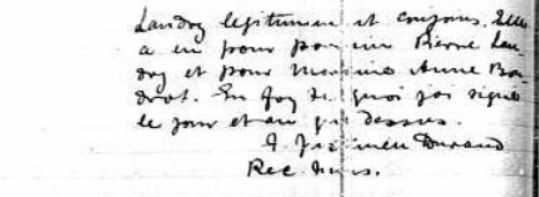 Landry legitimement et conjoins. Elle
a eu pour parrain Pierre Lan-
dry et pour Marraine Anne Bou-
drot. En foy de quoi j'ai signé
le jour et an que dessus.
Durand
Rec. Miss.